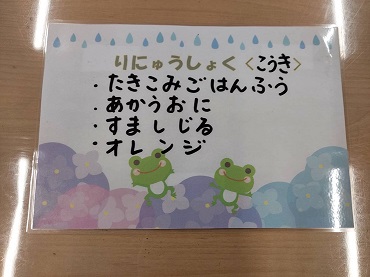 りにゅうしょく〈こうき〉
・たきこみごはんふう
・あかうおに
・すましじる
・オレンジ